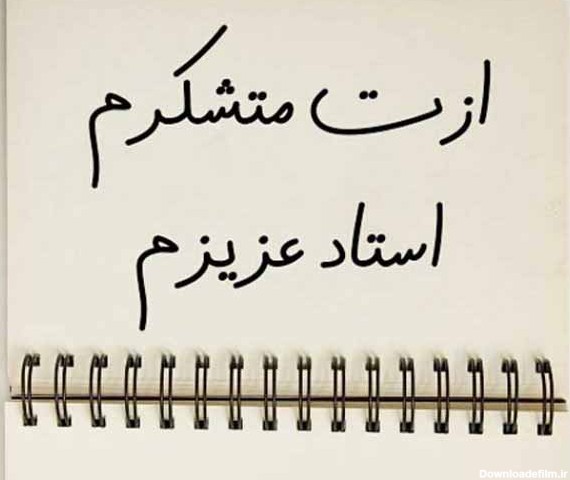 ازت متشکرم
استاد عزیزم
Downloadefilm.ir